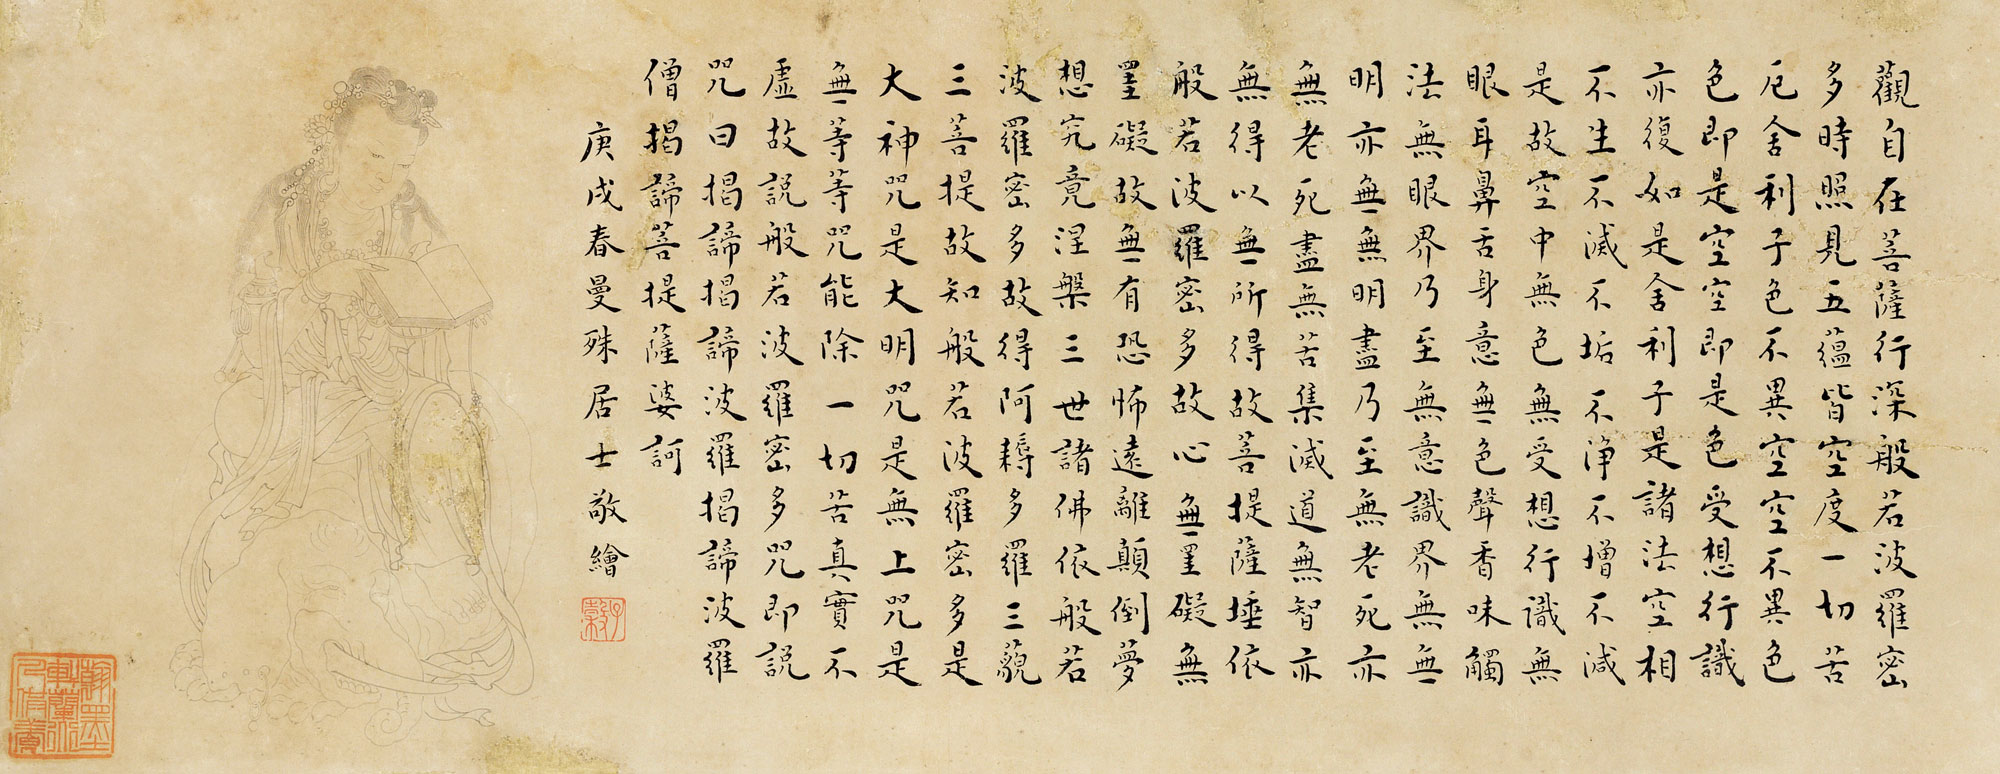 觀自在菩薩行深般若波羅密
多時照見五蘊皆空度一切苦
厄舍利子色不異空空不異色
色即是空空即是色受想行識
亦復如是舍利子是諸法空相
不生不滅不垢不淨不增不減
是故空中無色無受想行識無
眼耳鼻舌身意無色聲香味觸
法無眼界乃至無意識界無無
明亦無無明盡乃至無老死亦
無老死盡無苦集滅道無智亦
無得以無所得故菩提薩埵依
般若波羅密多故心無罣礙無
罣礙故無有恐怖遠離顛倒夢
想究竟涅槃三世諸佛依般若
波羅密多故得阿耨多羅三藐
三菩提故知般若波羅密多是
大神咒是大明咒是無上咒是
無等等咒能除一切苦真實不
虛故說般若波羅密多咒即說
咒曰揭諦揭諦波羅揭諦波羅
僧揭諦菩提薩婆訶
庚戌春曼殊居士敬繪
子穀